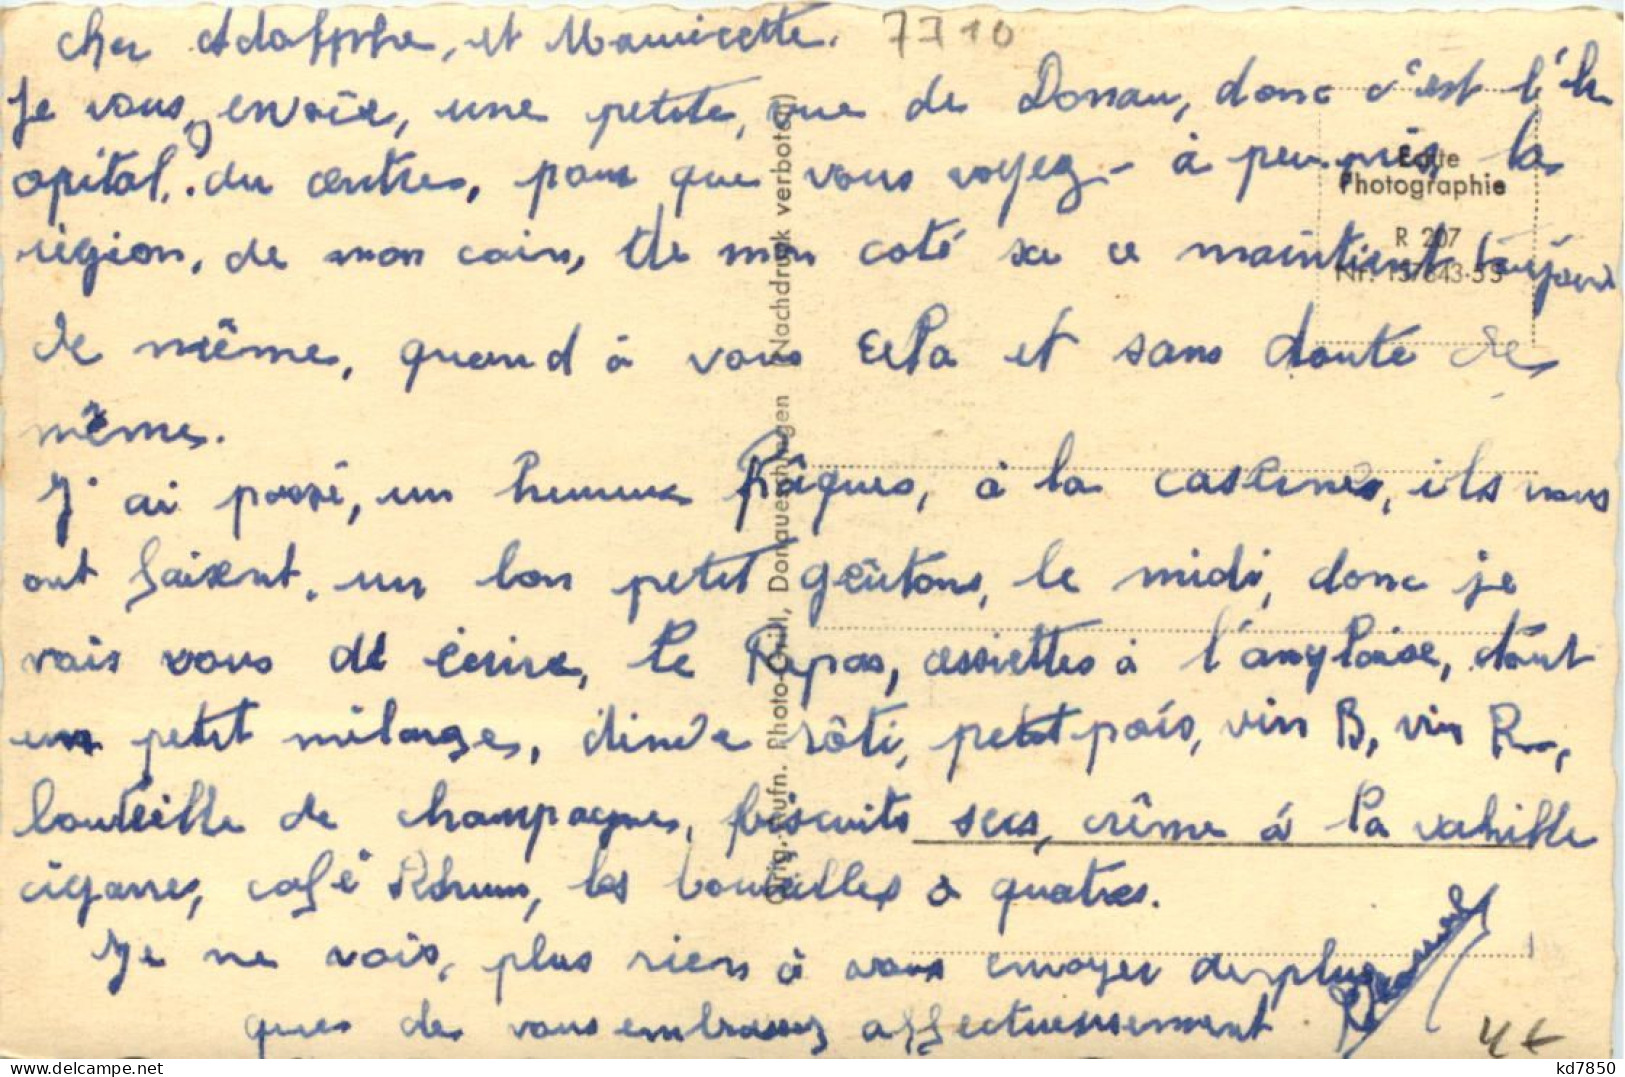 cher Adolphe, et Mauricette. 7710
Je vous, envoie, une petite, vue de Donau, donc c'est l'h
opital, du centres, pour que vous voyez - à peu près, la
région, de mon coin, De mon coté sa ce maintient toujours
de même, quand à vous cela et sans doute de
même.
J'ai passé, un heureux Pâques, à la casernes, ils nous
ont faisent, un bon petit geûtons, le midi, donc je
vais vous dé écrire, le Repas, assiettes à l'anglaise, tout
un petit mélanges, dinde rôti, petit pois, vin B, vin R,
bouteille de champagnes, biscuits secs, crême à la vahille
cigares, café Rhum, les bouteilles à quatres.
Je ne vois, plus rien à vous envoyer des plus
ques de vous embrassez affectueusement
4 €
Echte
Photographie
R 207
Nr. 157643-55
Orig. Aufn. Photo-Grill, Donaueschingen (Nachdruck verboten)
kd7850